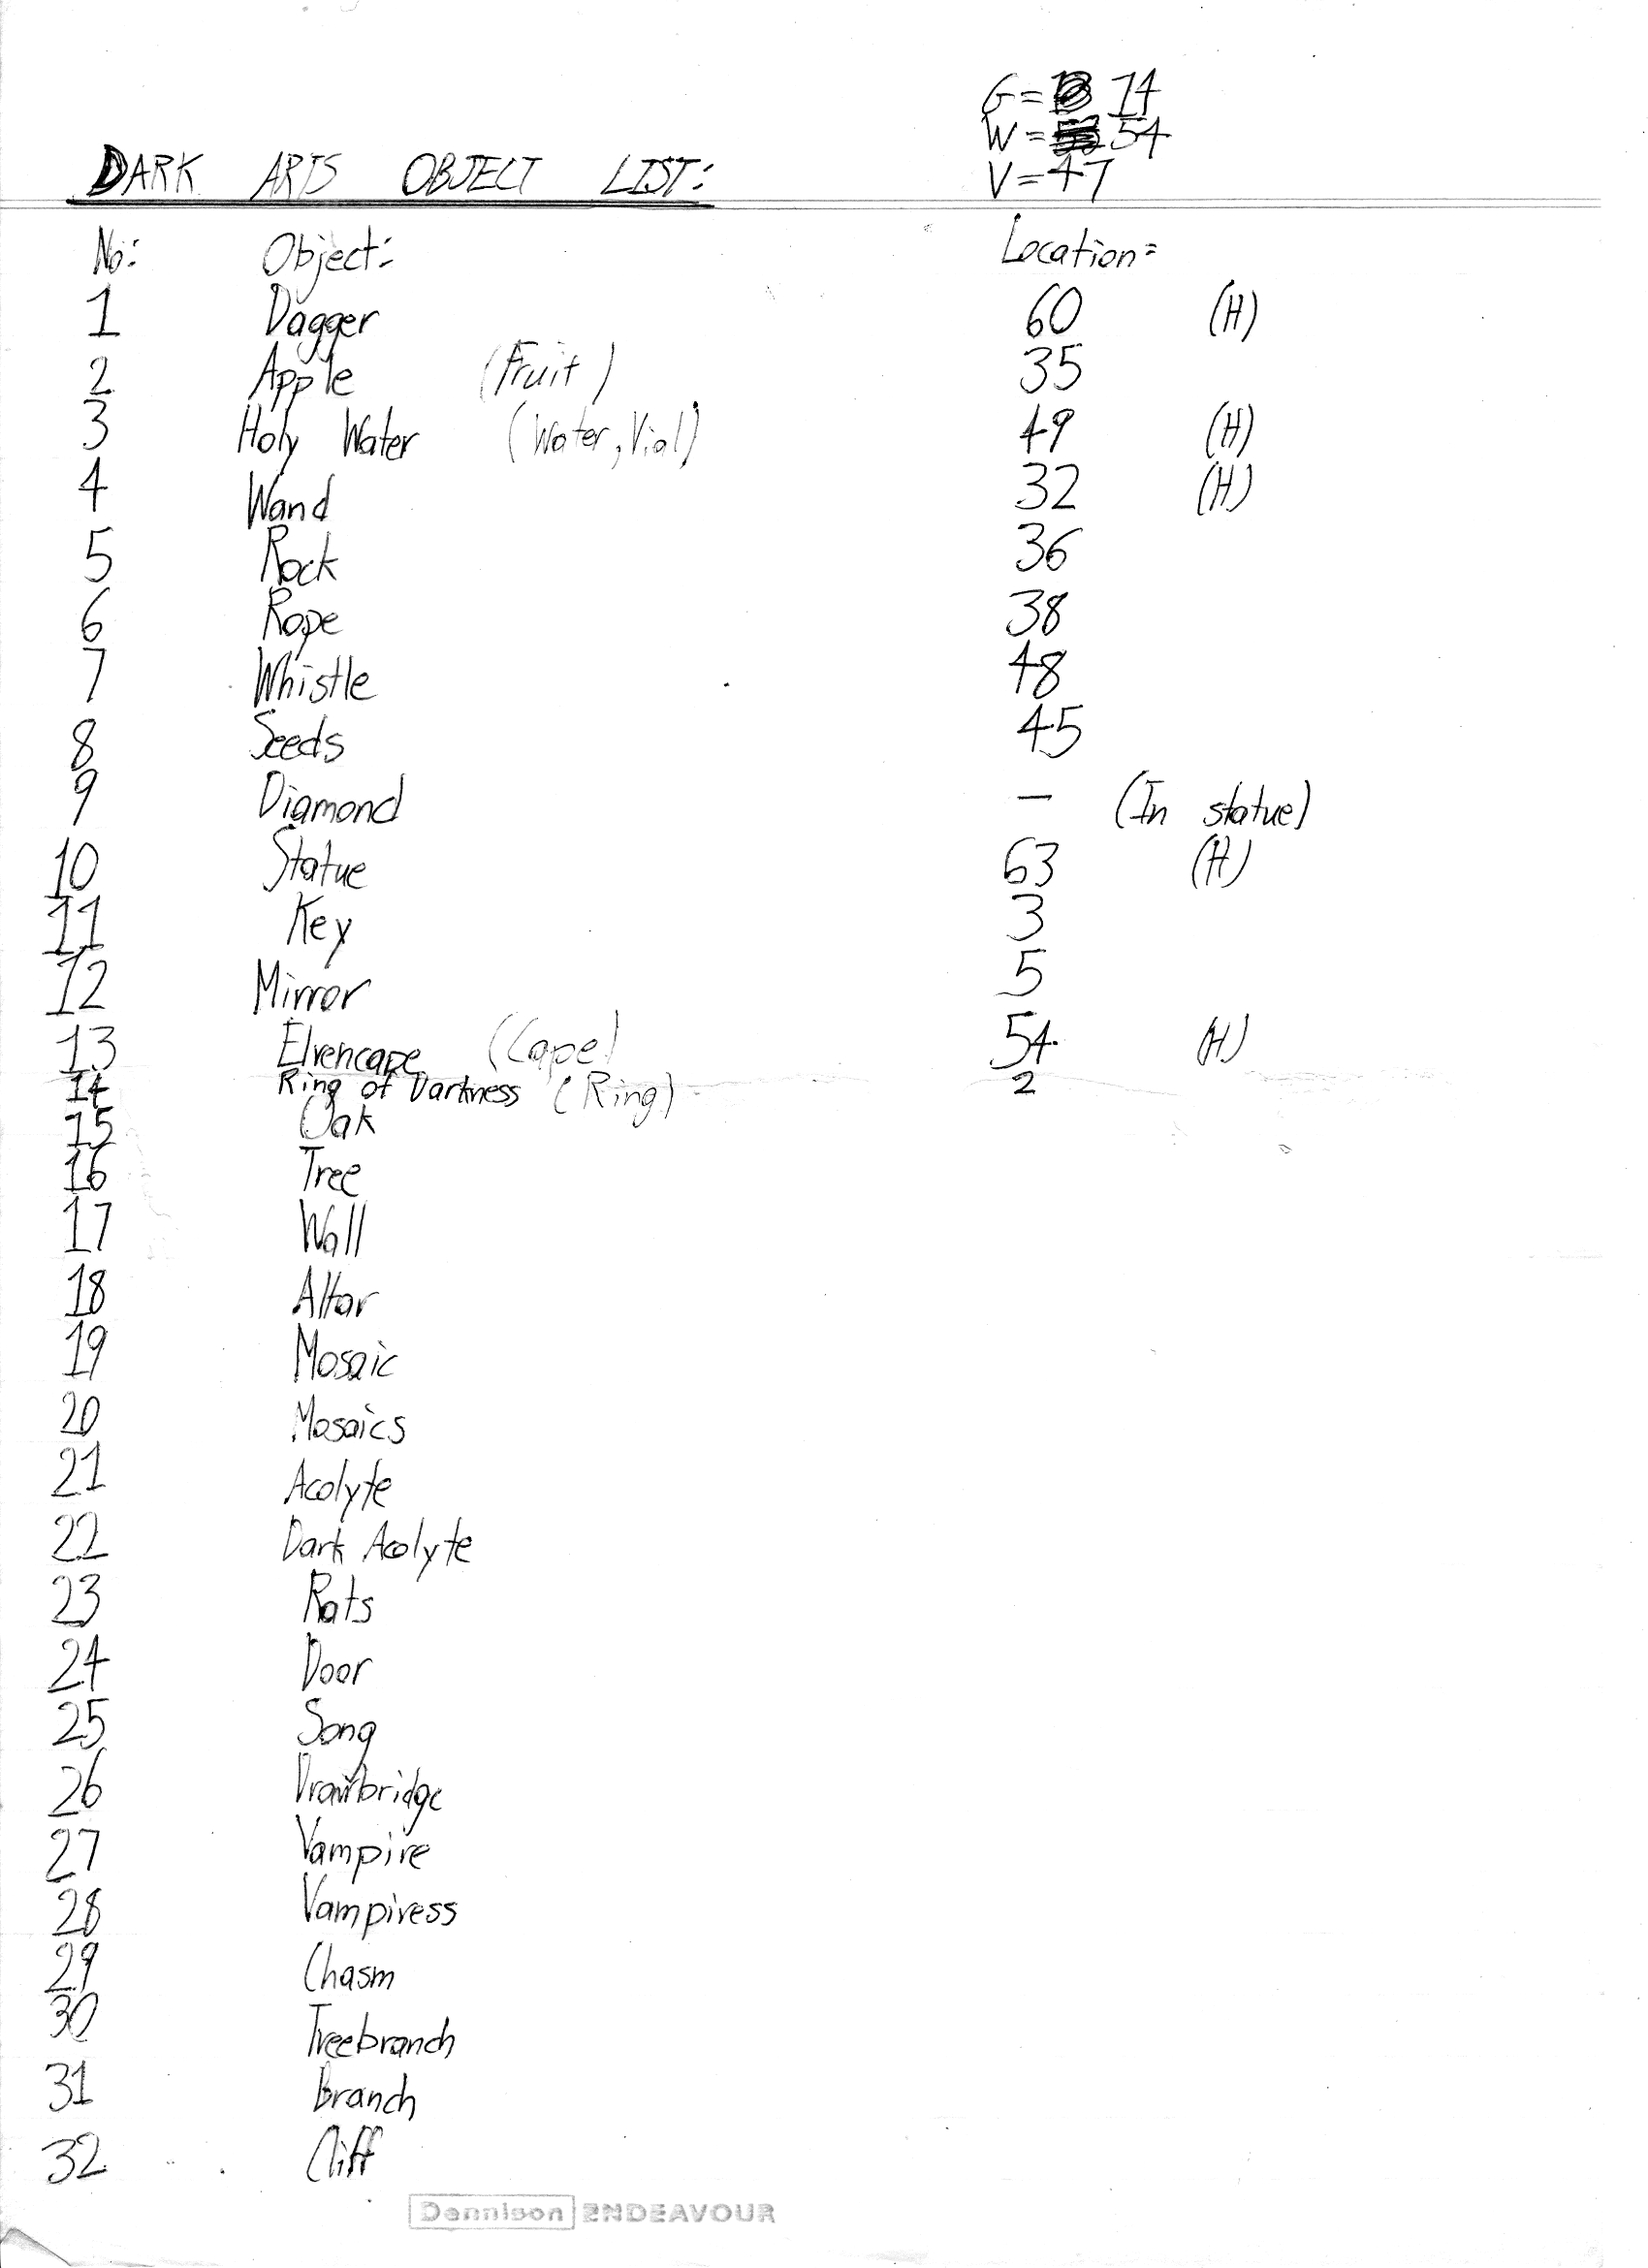 G = 14
W = 54
V = 47
DARK ARTS OBJECT LIST:
No: Object: Location=
1 Dagger 60 (H)
2 Apple (Fruit) 35
3 Holy Water (Water, Vial) 49 (H)
4 Wand 32 (H)
5 Rock 36
6 Rope 38
7 Whistle 48
8 Seeds 45
9 Diamond — (In statue)
10 Statue 63 (H)
11 Key 3
12 Mirror 5
13 Elvencape (Cape) 54 (H)
14 Ring of Darkness (Ring) 2
15 Oak
16 Tree
17 Wall
18 Altar
19 Mosaic
20 Mosaics
21 Acolyte
22 Dark Acolyte
23 Rats
24 Door
25 Song
26 Drawbridge
27 Vampire
28 Vampiress
29 Chasm
30 Treebranch
31 Branch
32 Cliff
Dennison ENDEAVOUR